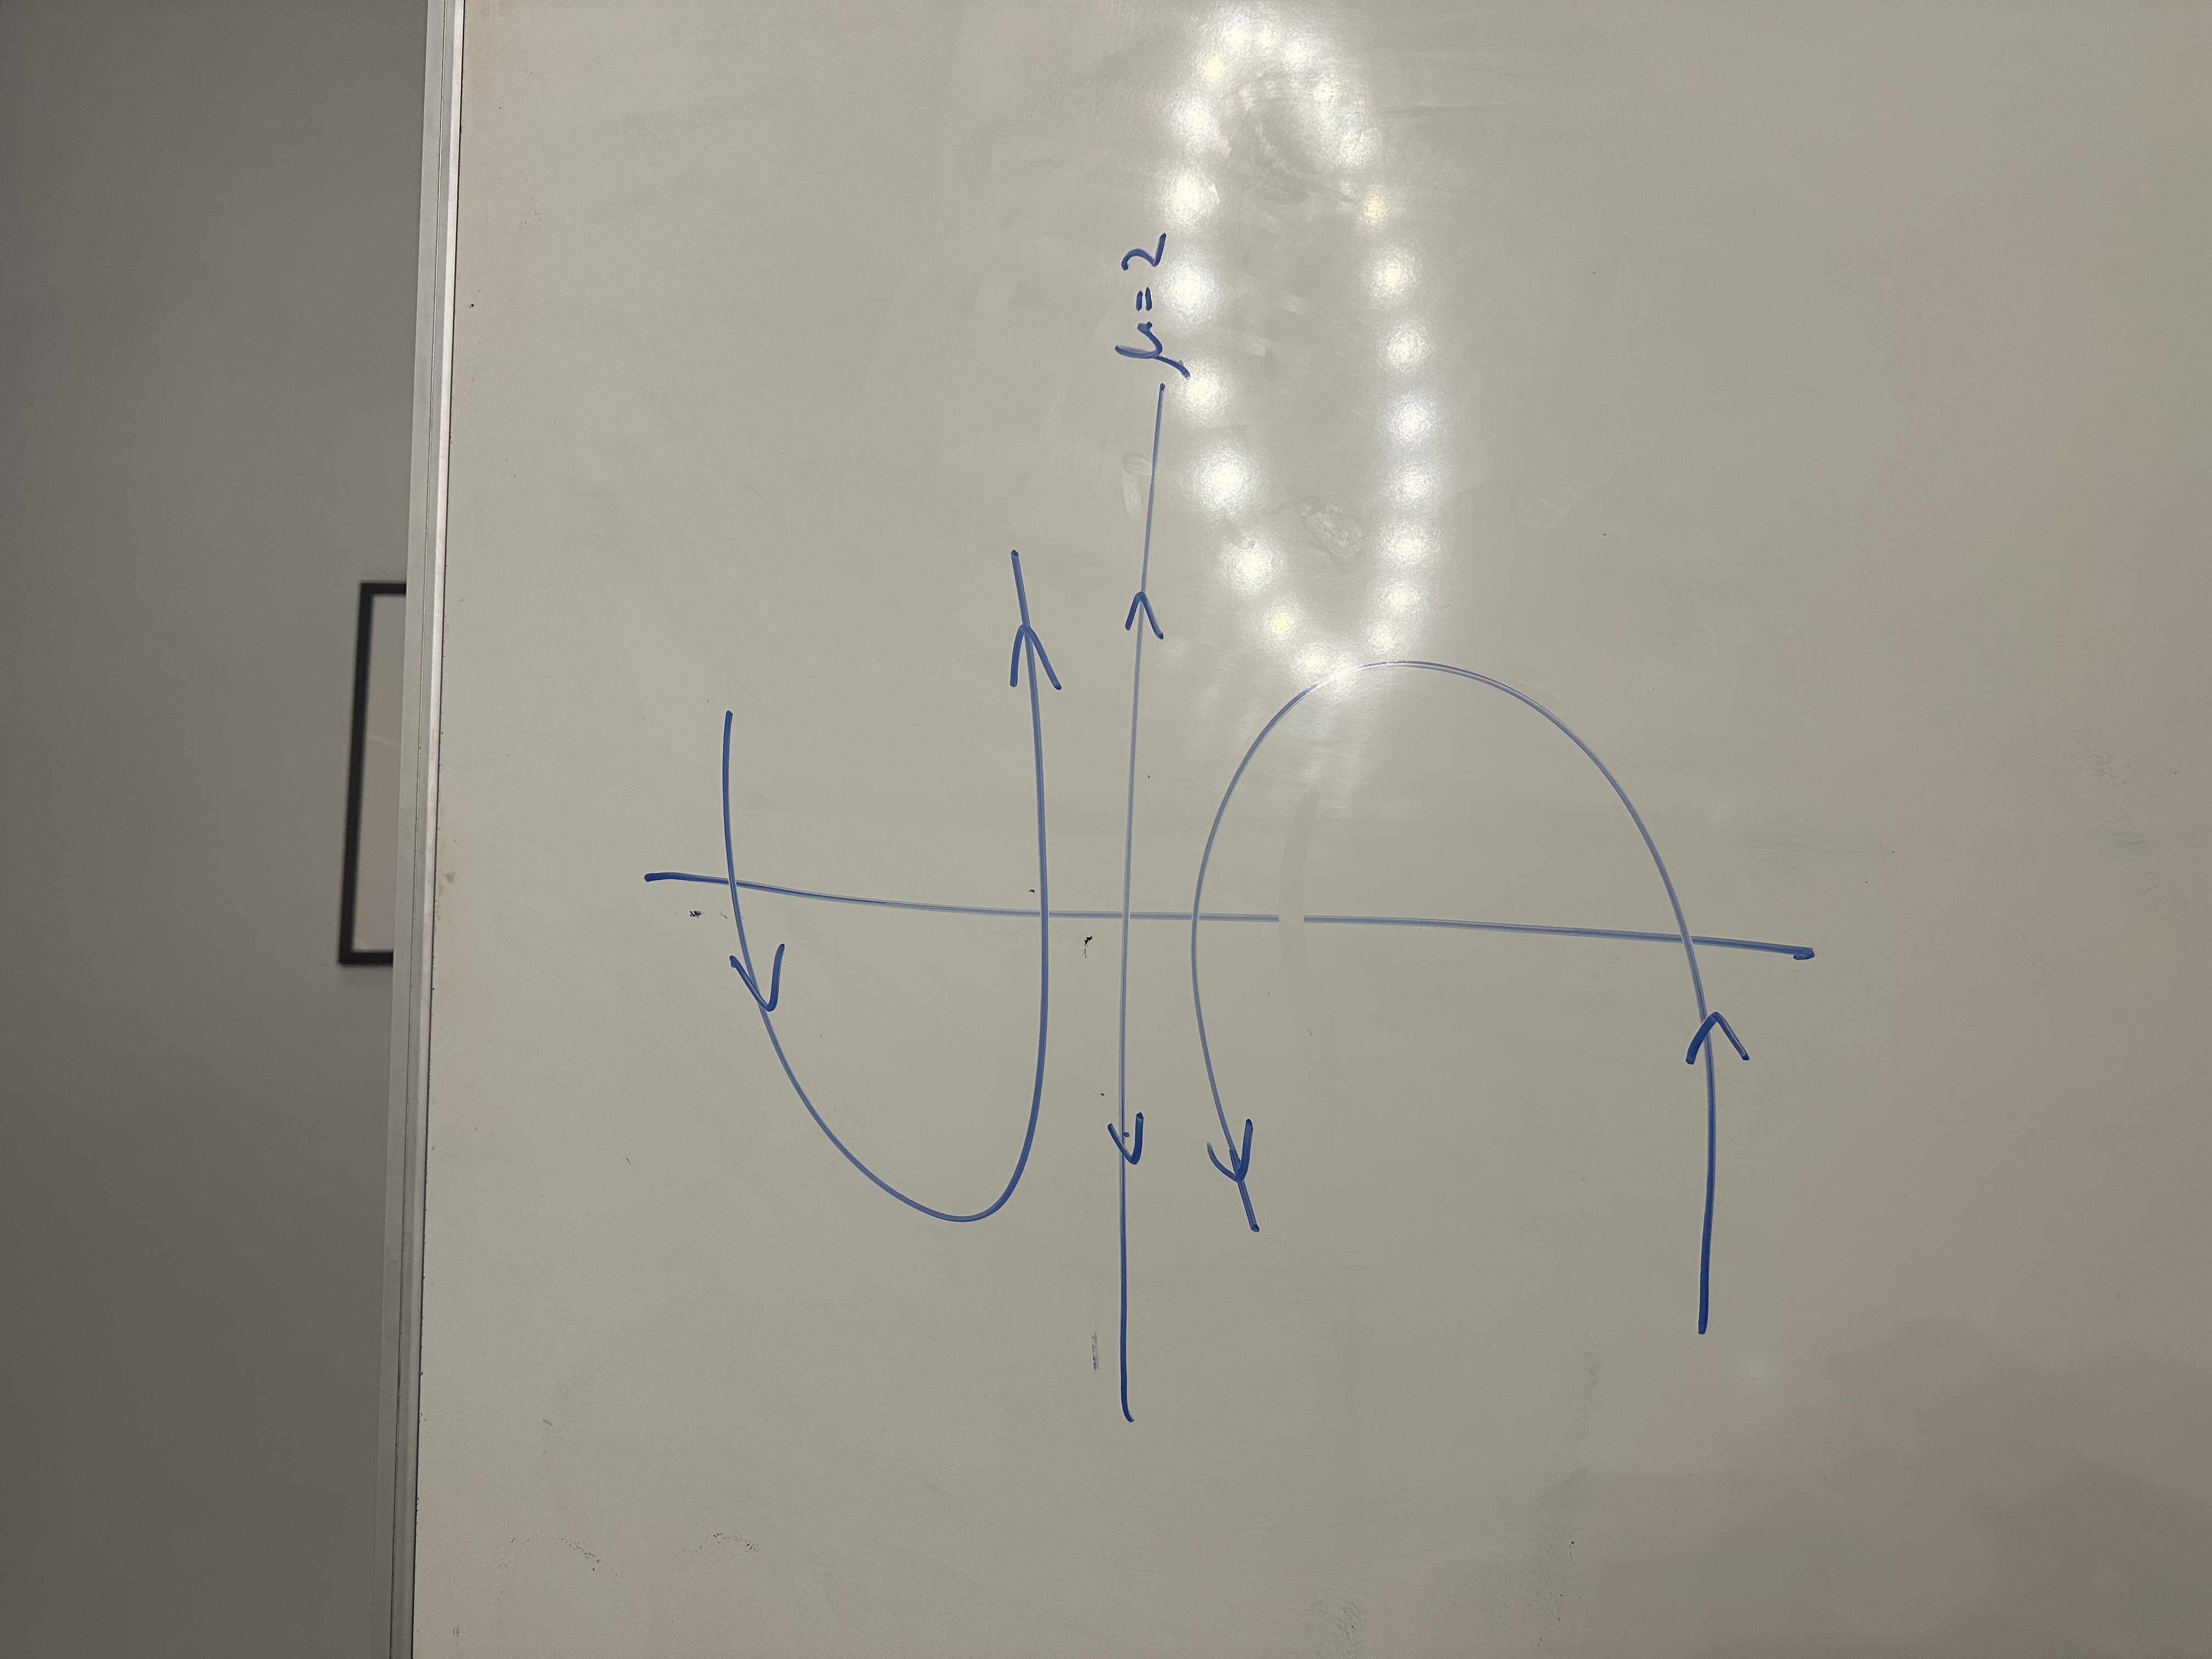 μ=2